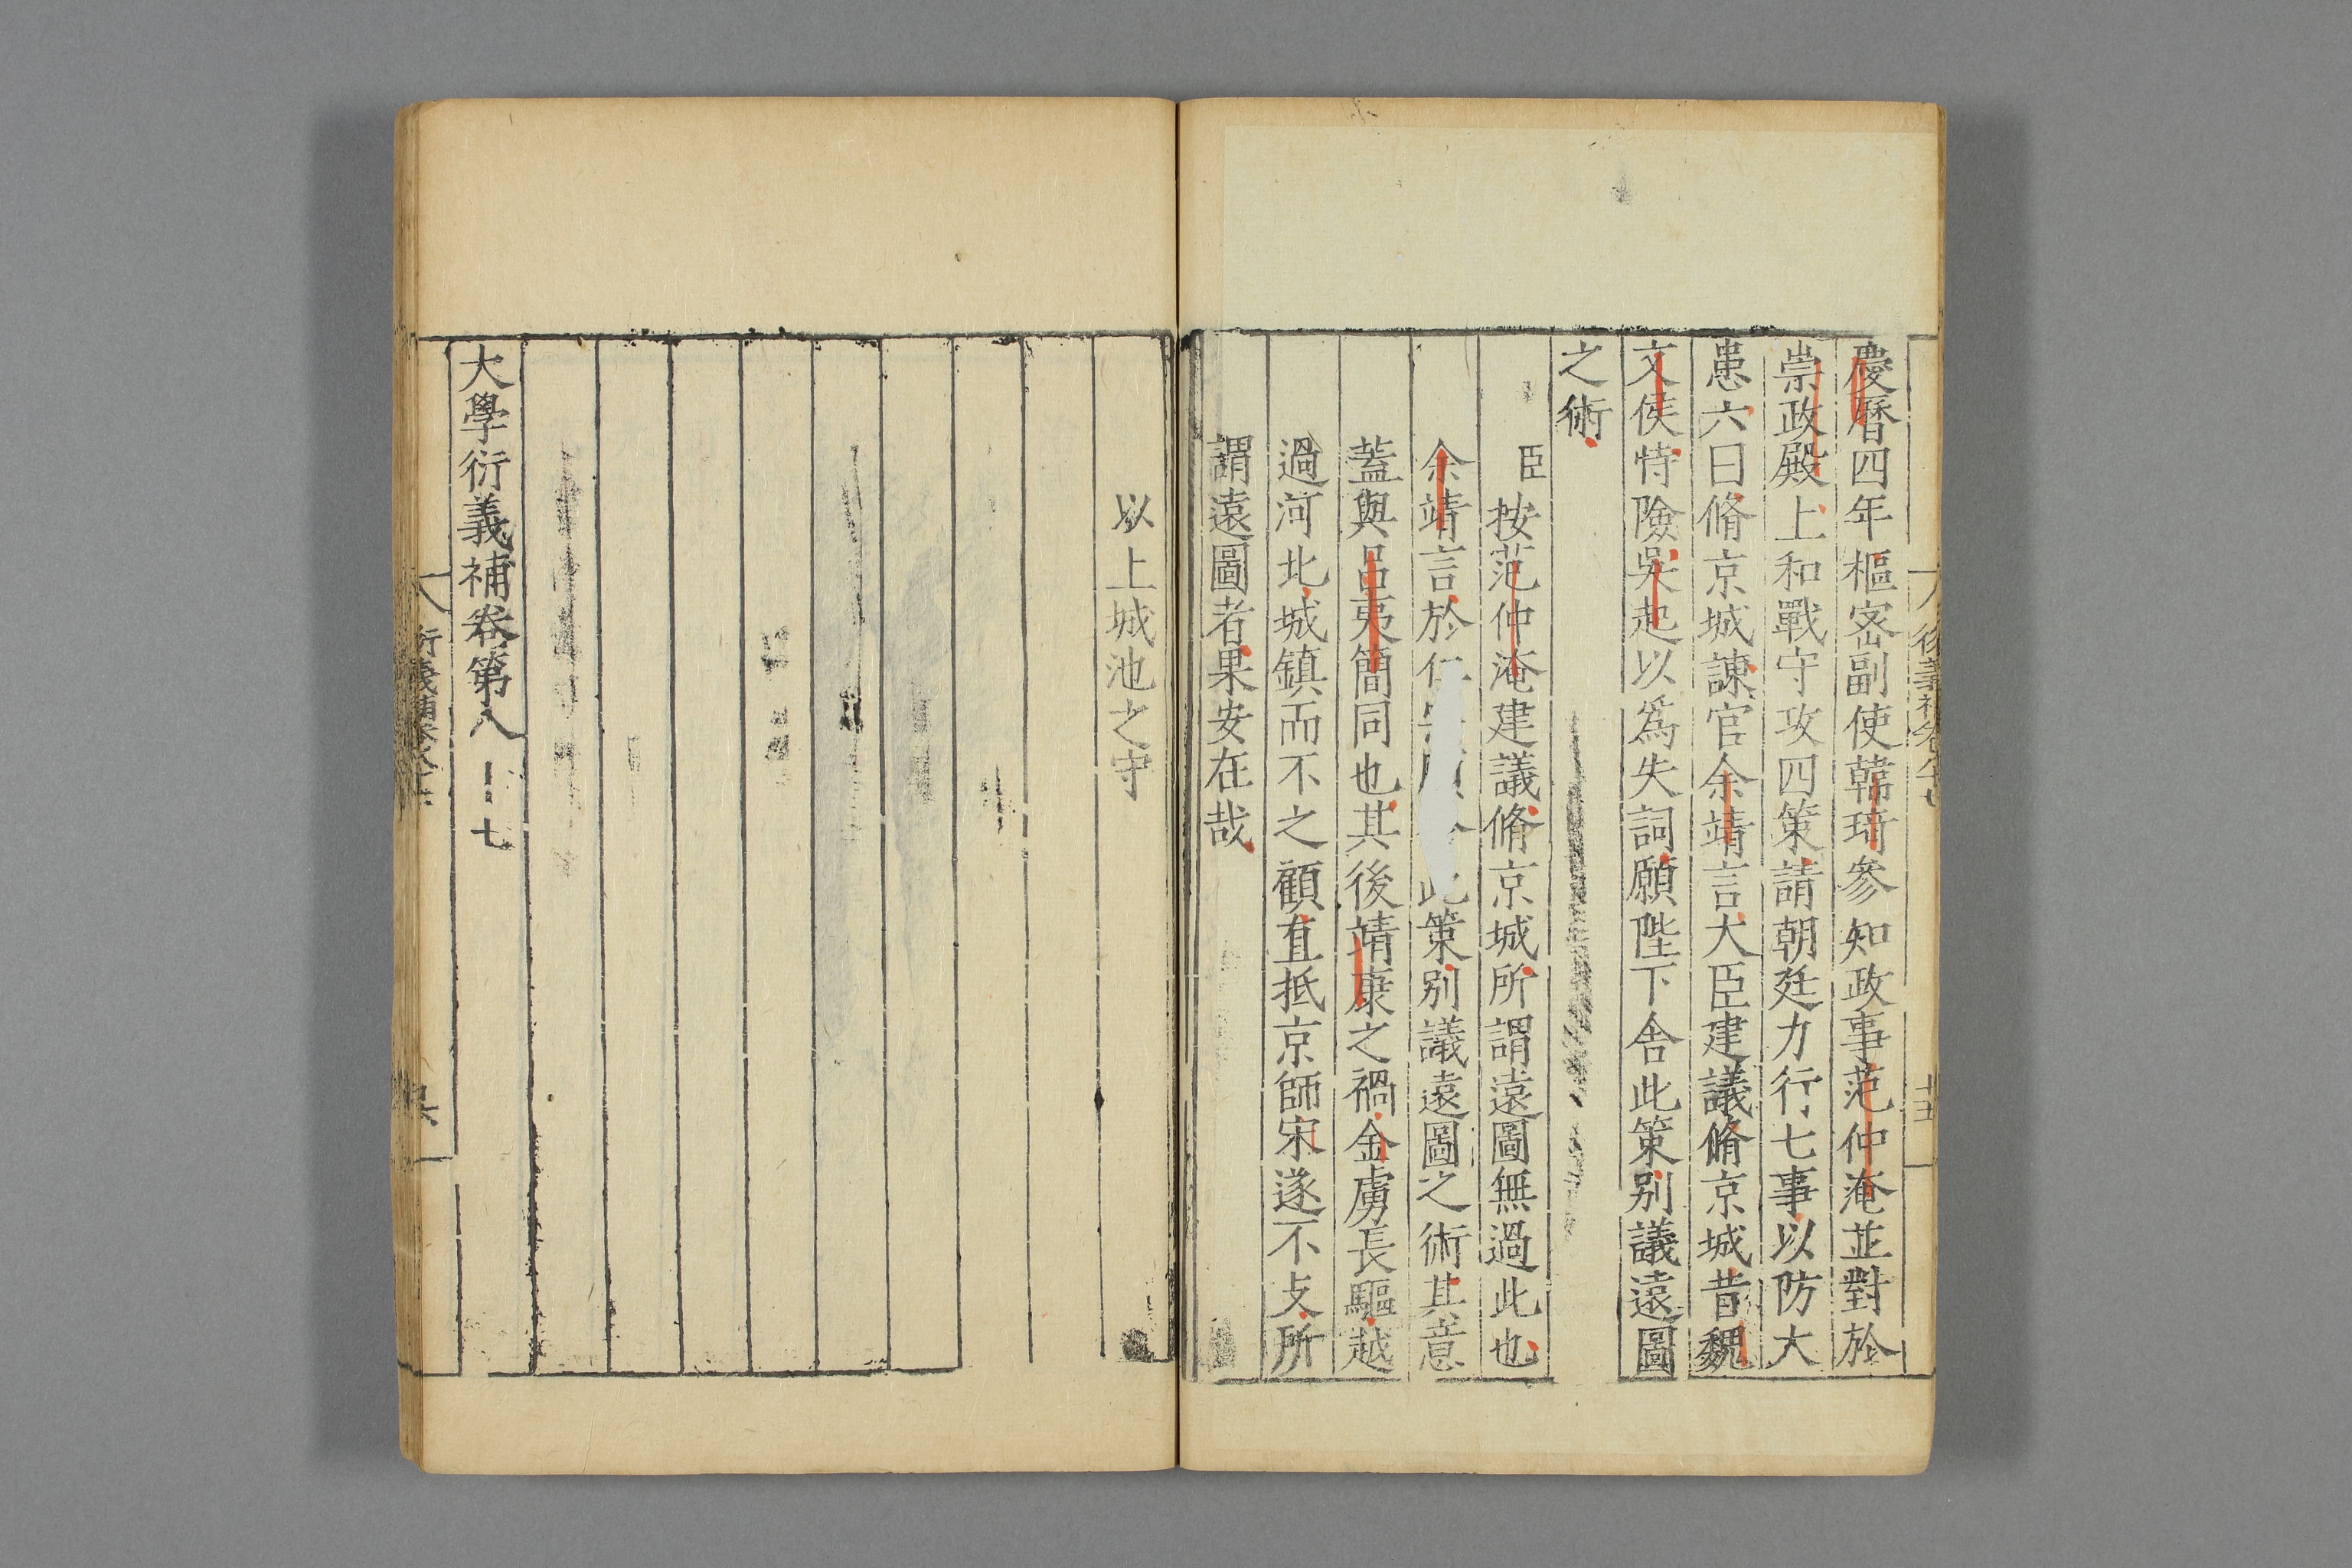 慶曆四年樞密副使韓琦參知政事范仲淹並對於
崇政殿上和戰守攻四策請朝廷力行七事以防大
患六曰脩京城諫官余靖言大臣建議脩京城昔魏
文侯恃險吳起以爲失詞願陛下舍此策別議遠圖
之術
臣按范仲淹建議脩京城所謂遠圖無過此也
余靖言於此策別議遠圖之術其意
蓋與呂夷簡同也其後靖康之禍金虜長驅越
過河北城鎮而不之顧直抵京師宋遂不支所
謂遠圖者果安在哉
以上城池之守
大學衍義補卷第八十七